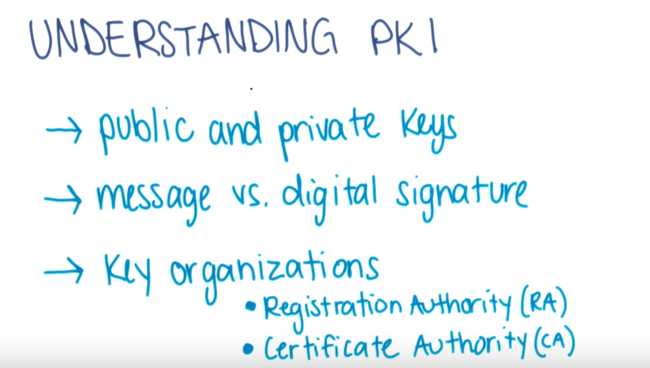 UNDERSTANDING PKI
→ public and private keys
→ message vs. digital signature
→ Key organizations
• Registration Authority (RA)
• Certificate Authority (CA)